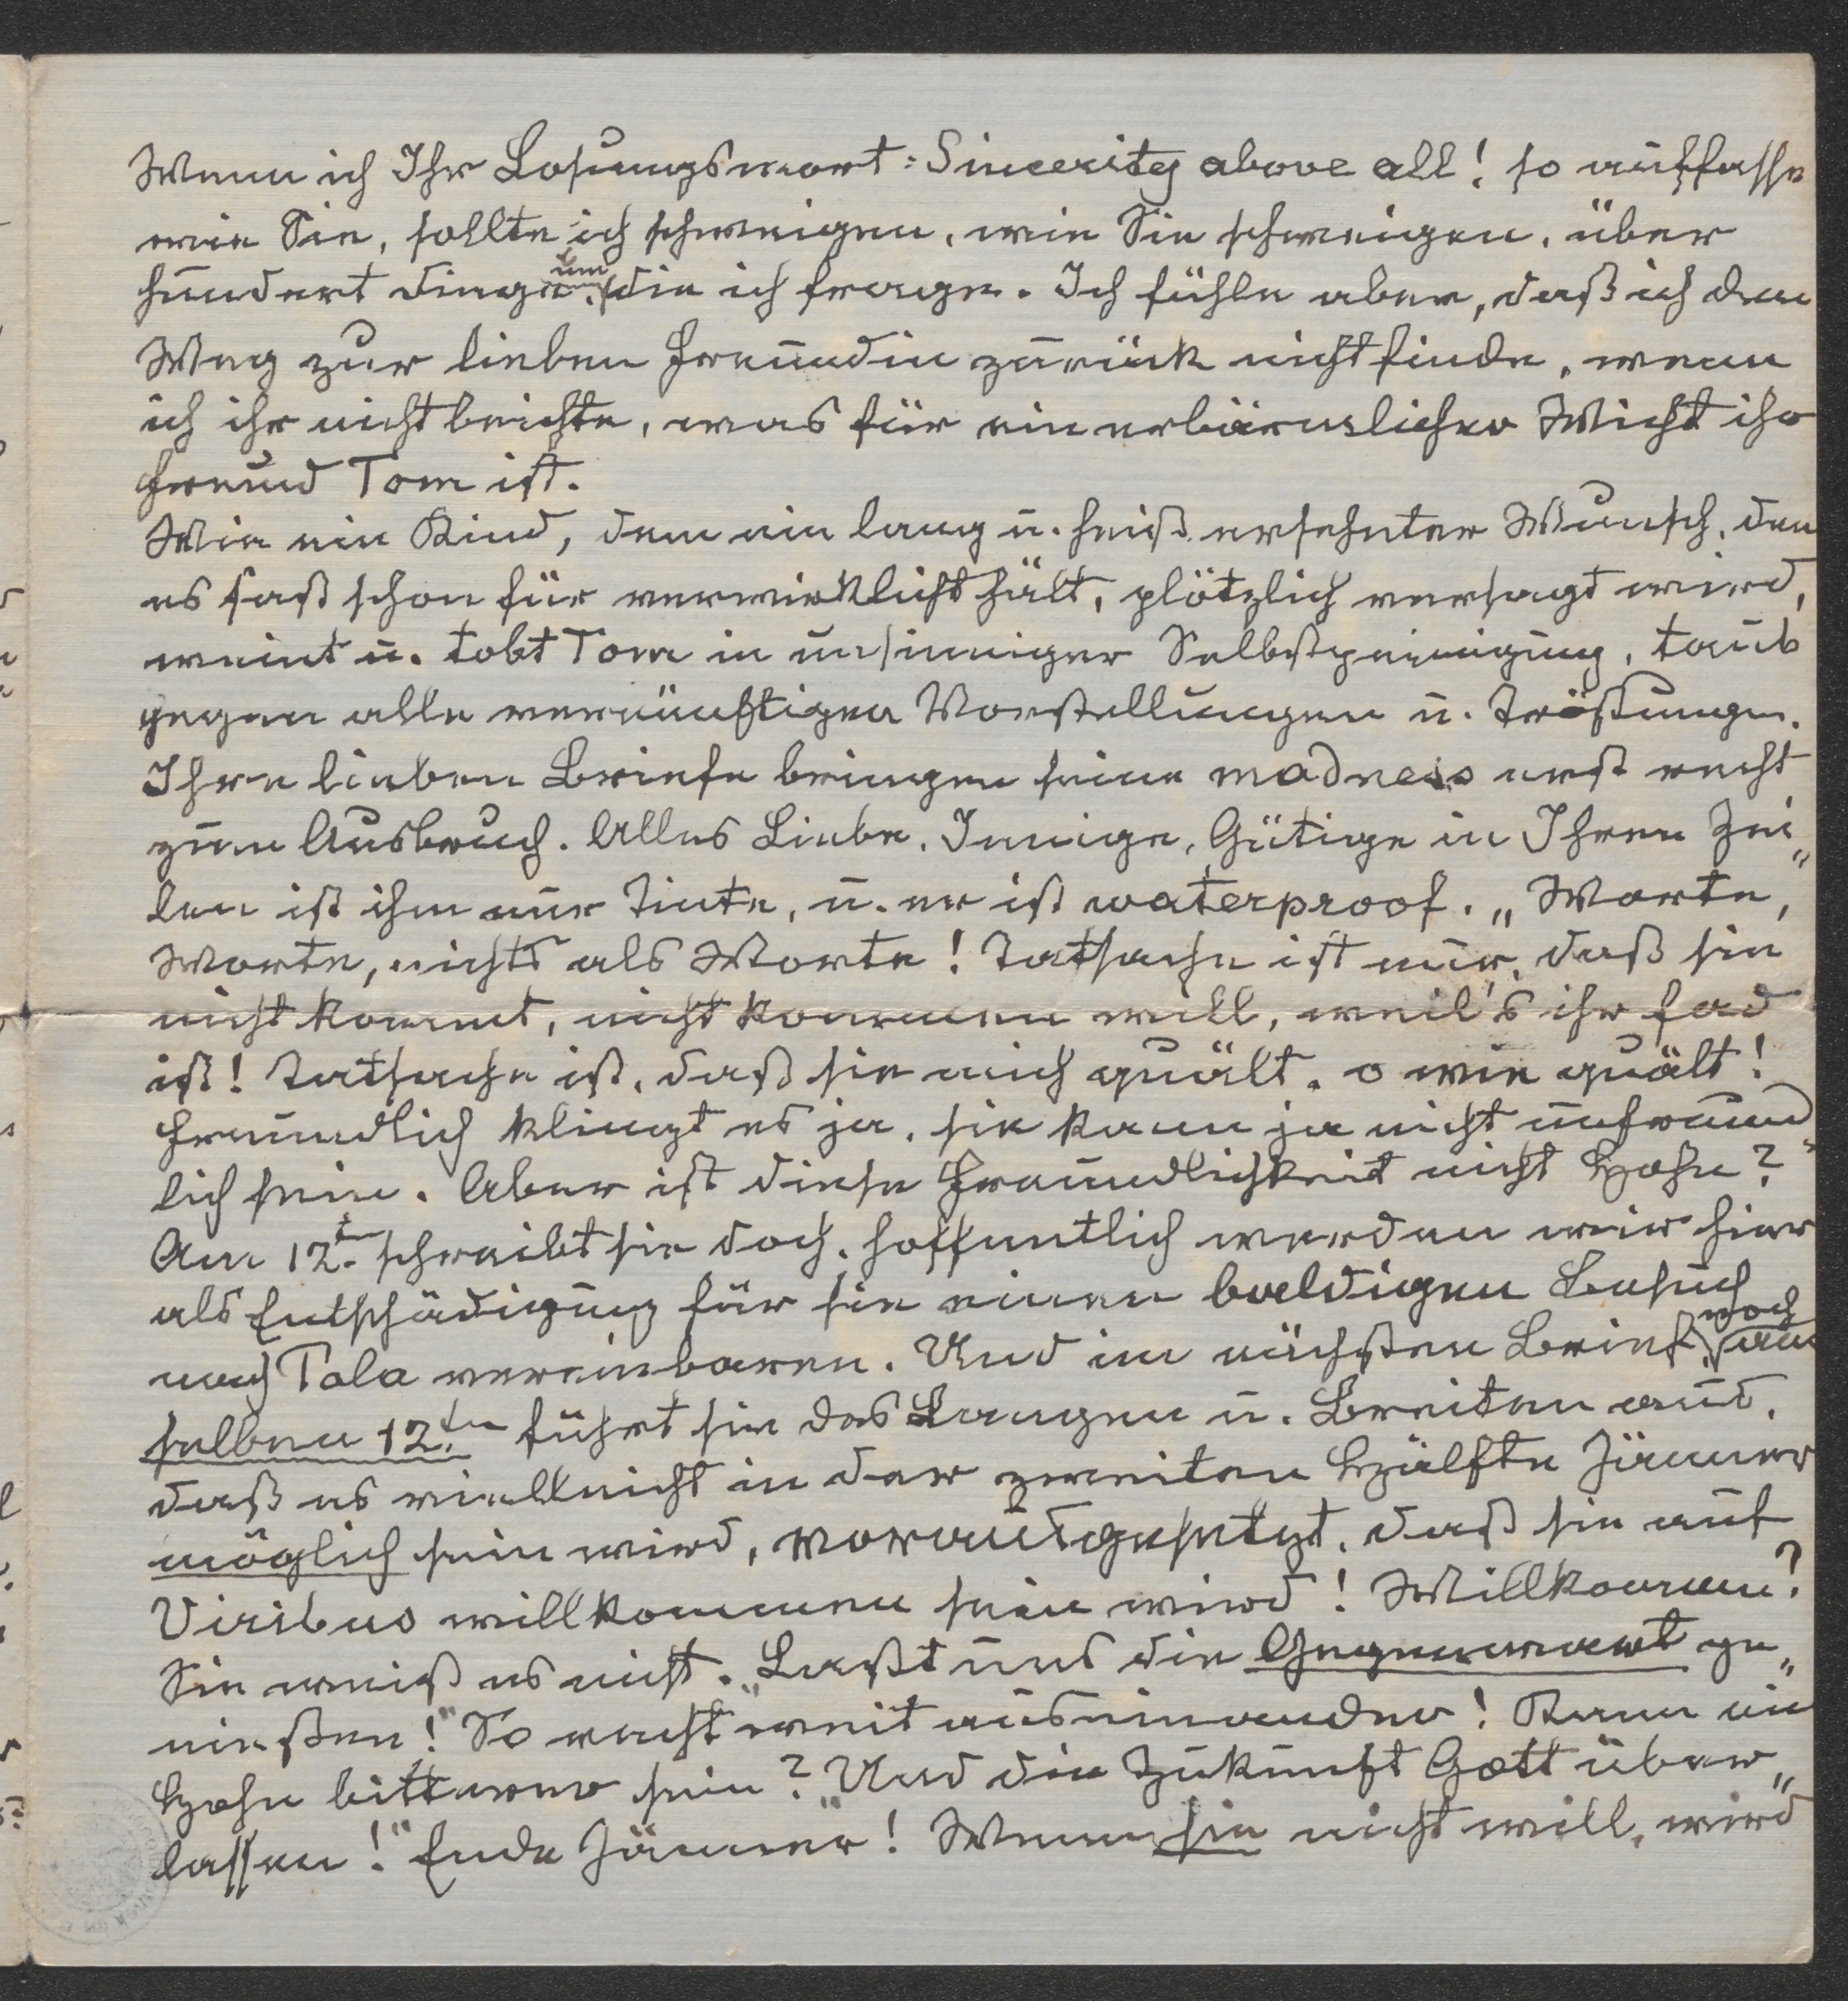 Wenn ich Ihr Losungswort: Sincerity above all! so auffasse
wie Sie, sollte ich schweigen, wie Sie schweigen, über
hundert Dinge, um die ich frage. Ich fühle aber, daß ich den
Weg zur lieben Freundin zurück nicht finde, wenn
ich ihr nicht beichte, was für ein erbärmlicher Wicht ihr
Freund Tom ist.
Wie ein Kind, dem ein lang u. heiß ersehnter Wunsch, den
es fast schon für verwirklicht hält, plötzlich versagt wird,
weint u. tobt Tom in unsinniger Selbstpeinigung, taub
gegen alle vernünftigen Vorstellungen u. Tröstungen.
Ihre lieben Briefe bringen seine madness erst recht
zum Ausbruch. Alles Liebe, Innige, Gütige in Ihren Zei„
len ist ihm nur Tinte, u. er ist waterproof. „Worte,
Worte, nichts als Worte! Tatsache ist nur, daß sie
nicht kommt, nicht kommen will, weil's ihr fad
ist! Tatsache ist, daß sie mich quält, o wie quält!
Freundlich klingt es ja, sie kann ja nicht unfreund„
lich sein. Aber ist diese Freundlichkeit nicht Hohn?
Am 12.t schreibt sie doch, hoffentlich werden wir hier
als Entschädigung für sie einen baldigen Besuch
nach Pola vereinbaren. Und im nächsten Brief, noch am
selben 12.ten führt sie des Langen u. Breiten aus,
daß es vielleicht in der zweiten Hälfte Jänner
möglich sein wird, vorausgesetzt, daß sie auf
Viribus willkommen sein wird! Willkommen?
Sie weiß es nicht. „Laßt uns die Gegenwart ge„
nießen!" So recht weit auseinander! Kann ein
Hohn bitterer sein? „Und die Zukunft Gott über„
lassen!" Ende Jänner! Wenn sie nicht will, wird